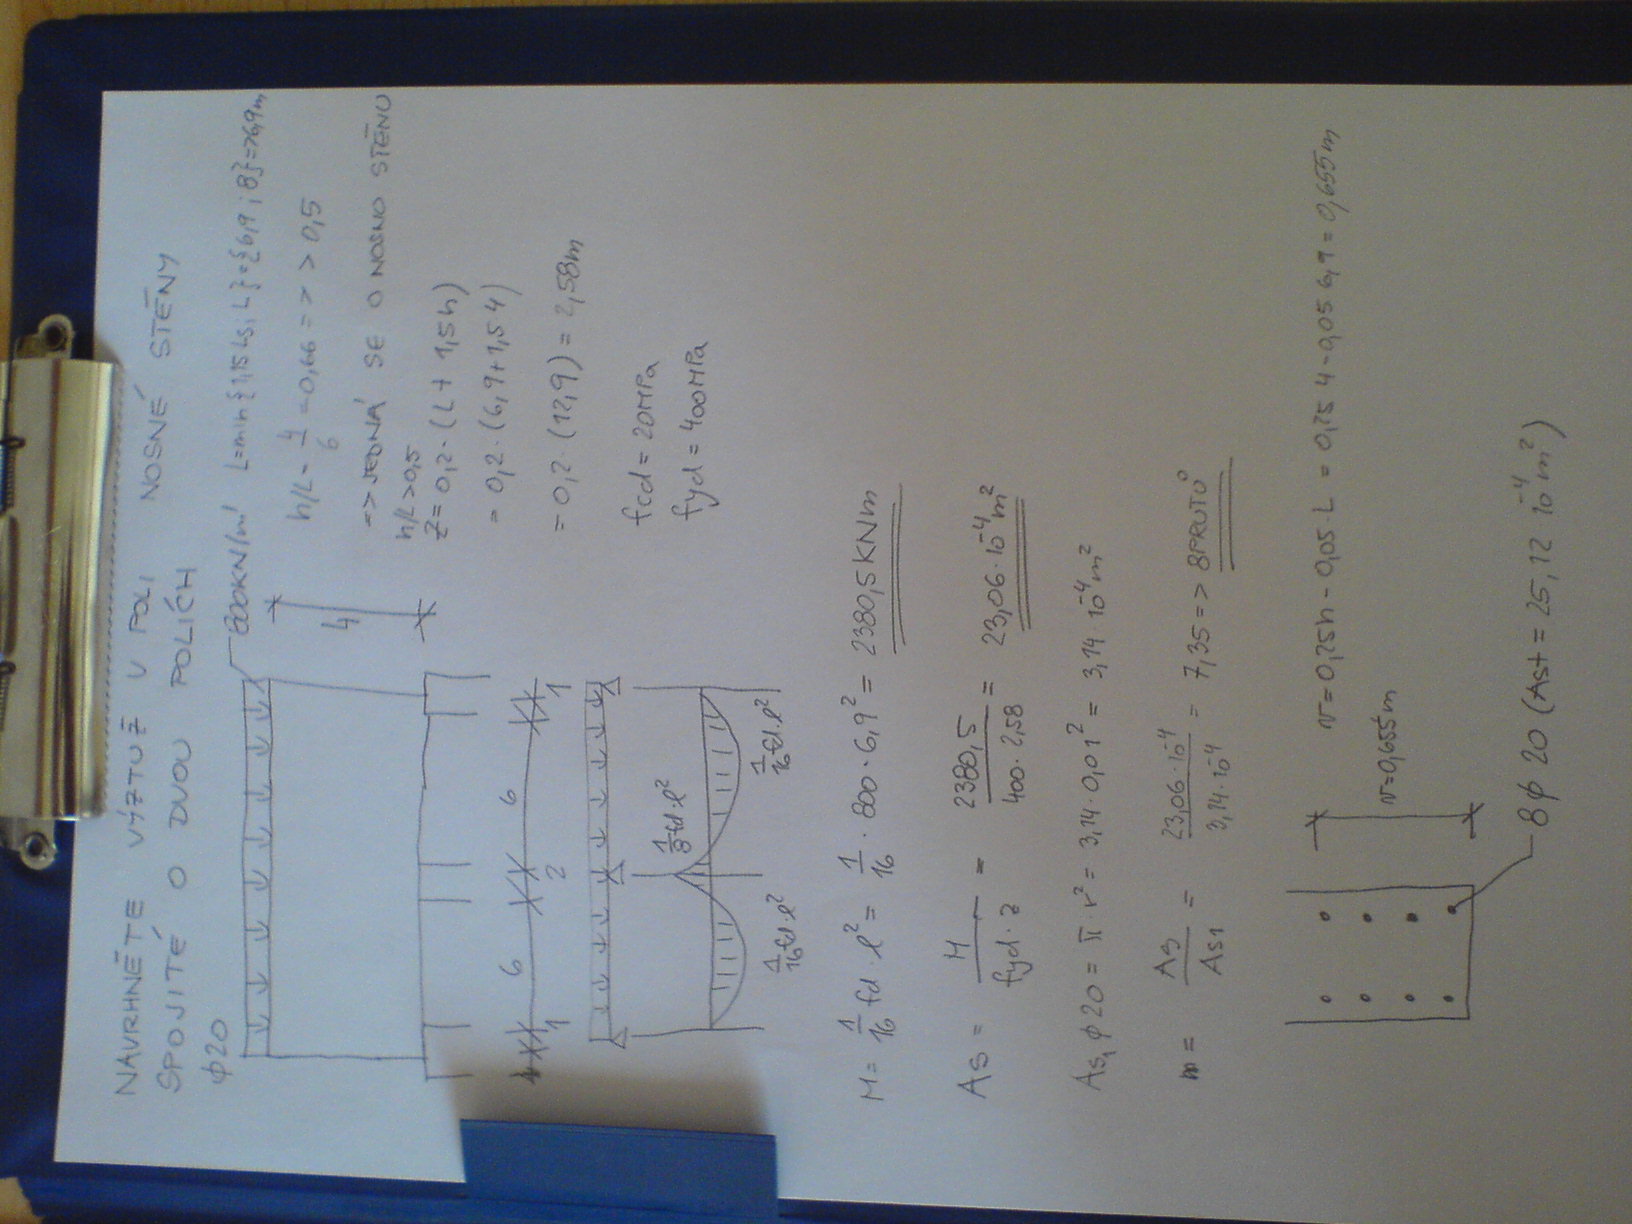 NAVRHNĚTE VÝZTUŽ V POLI NOSNÉ STĚNY
SPOJITÉ O DVOU POLÍCH
φ20
800KN/m' L=min{1,15 Ls; L}={6,9;8}=>6,9m
h/L = 4/6 = 0,66 => > 0,5
4
=> JEDNÁ SE O NOSNO STĚNU
h/L>0,5
Z = 0,2 · (L + 1,5h)
= 0,2 · (6,9+1,5 4)
= 0,2 · (12,9) = 2,58m
1 6 2 6 1
fcd = 20MPa
fyd = 400MPa
1/8 fd · l²
1/16 fd · l² 1/16 fd · l²
M = 1/16 fd · l² = 1/16 · 800 · 6,9² = 2380,5KNm
As = M/fyd · z = 2380,5/400 · 2,58 = 23,06 · 10⁻⁴m²
As₁ φ 20 = π · r² = 3,14 · 0,01² = 3,14 · 10⁻⁴m²
m = As/As1 = 23,06 · 10⁻⁴/3,14 · 10⁻⁴ = 7,35 => 8PRUTŮ
v = 0,25h - 0,05 · L = 0,25 4 - 0,05 6,9 = 0,655m
v=0,655m
8φ 20 (Ast = 25,12 10⁻⁴m²)